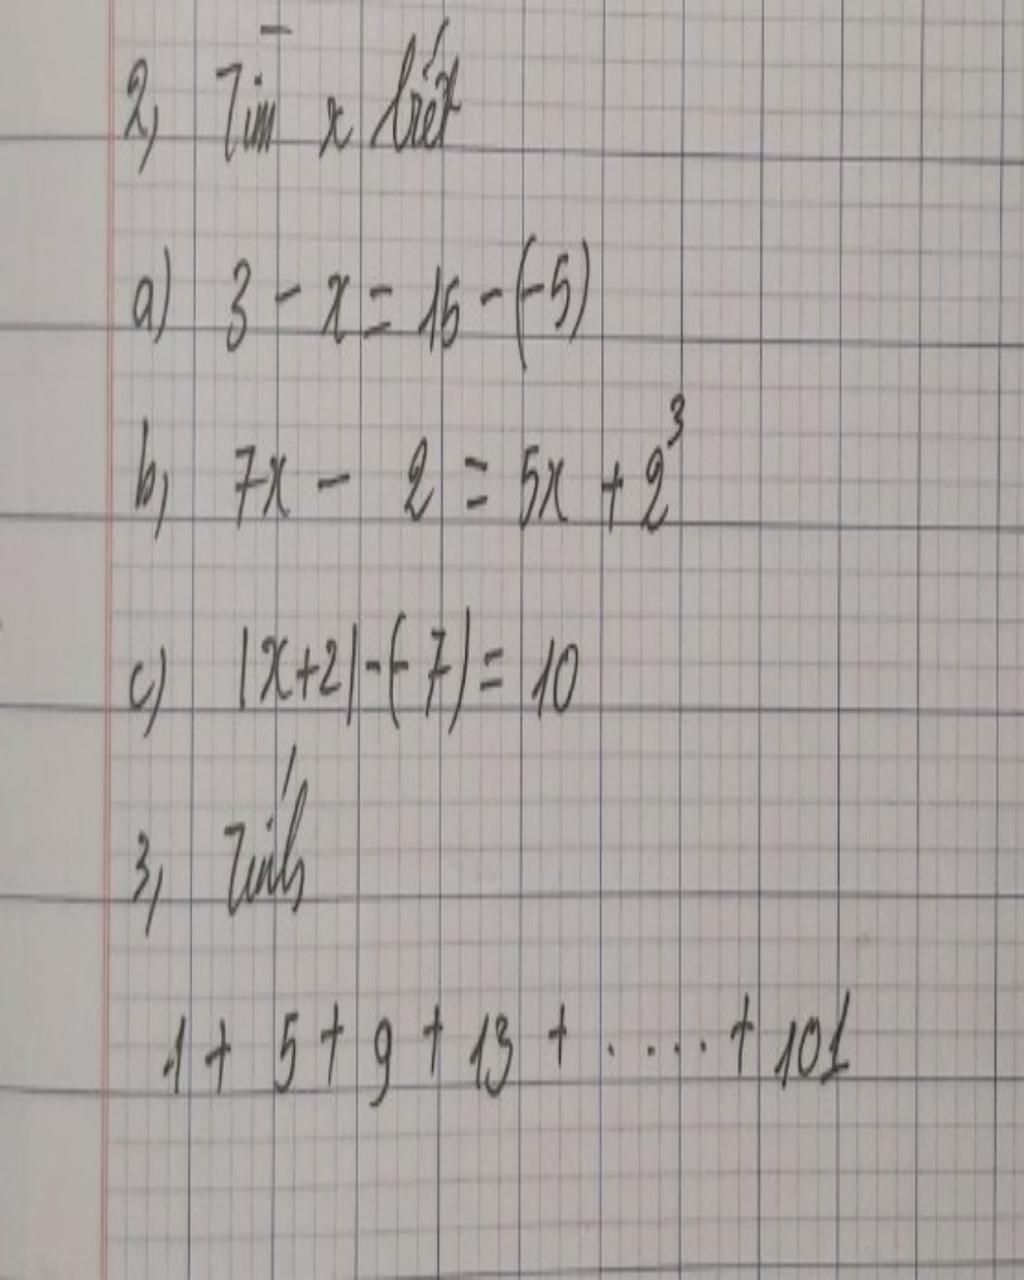 2, Tìm x biết
a) 3 - x = 15 - (-5)
b, 7x - 2 = 5x + 2³
c) |x+2| - (-7) = 10
3, Tính
1 + 5 + 9 + 13 + ..... + 101